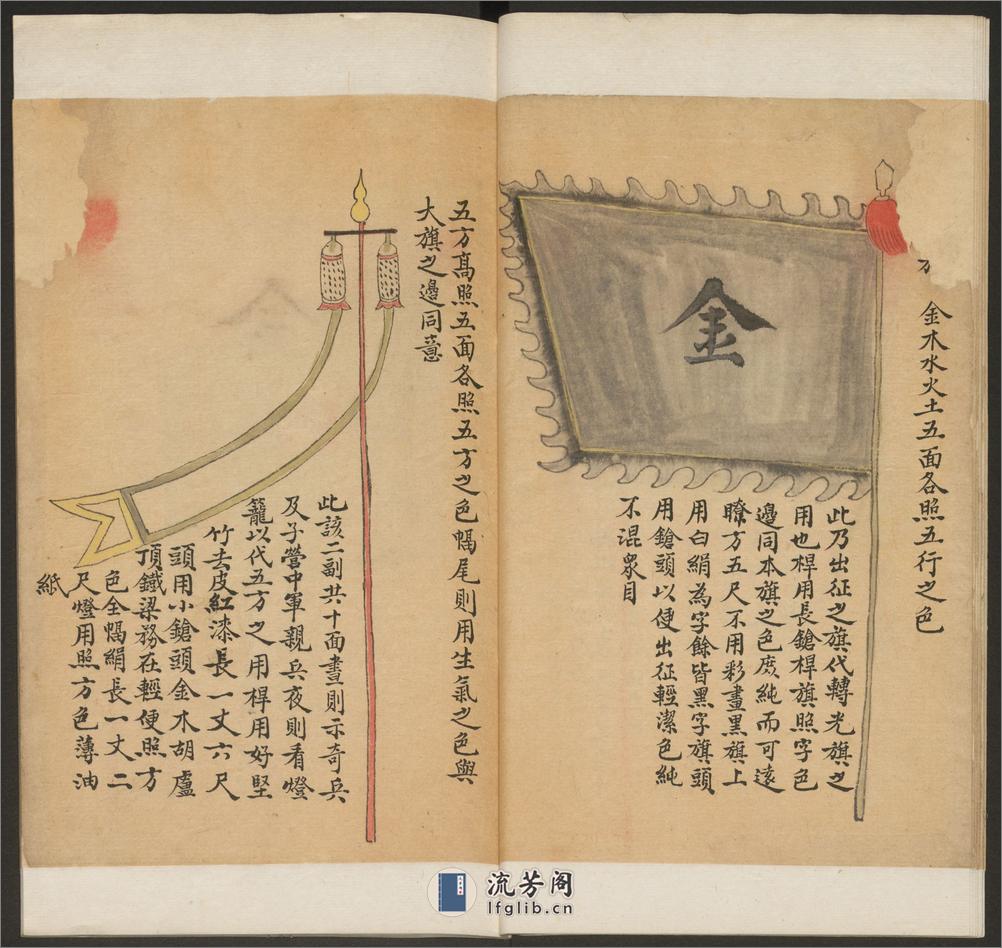 金木水火土五面各照五行之色
金
此乃出征之旗代轉光旗之
用也桿用長鎗桿旗照字色
邊同本旗之色庶純而可遠
瞭方五尺不用彩畫黑旗上
用白絹為字餘皆黑字旗頭
用鎗頭以便出征輕潔色純
不混衆目
五方髙照五面各照五方之色幅尾則用生氣之色與
大旗之邊同意
此該二副共十面晝則示奇兵
及子營中軍親兵夜則看燈
籠以代五方之用桿用好堅
竹去皮紅漆長一丈六尺
頭用小鎗頭金木胡盧
頂鐵梁務在輕便照方
色全幅絹長一丈二
尺燈用照方色薄油
紙
流芳阁
lfglib.cn